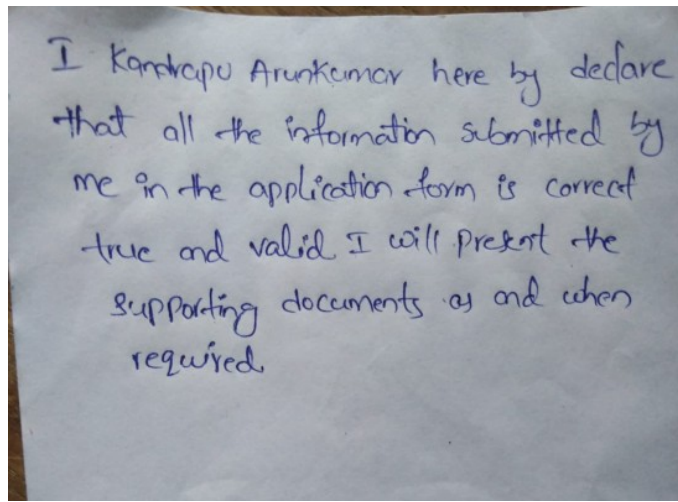 I Kandrapu Arunkumar here by declare
that all the information submitted by
me in the application form is correct
true and valid I will present the
supporting documents as and when
required.